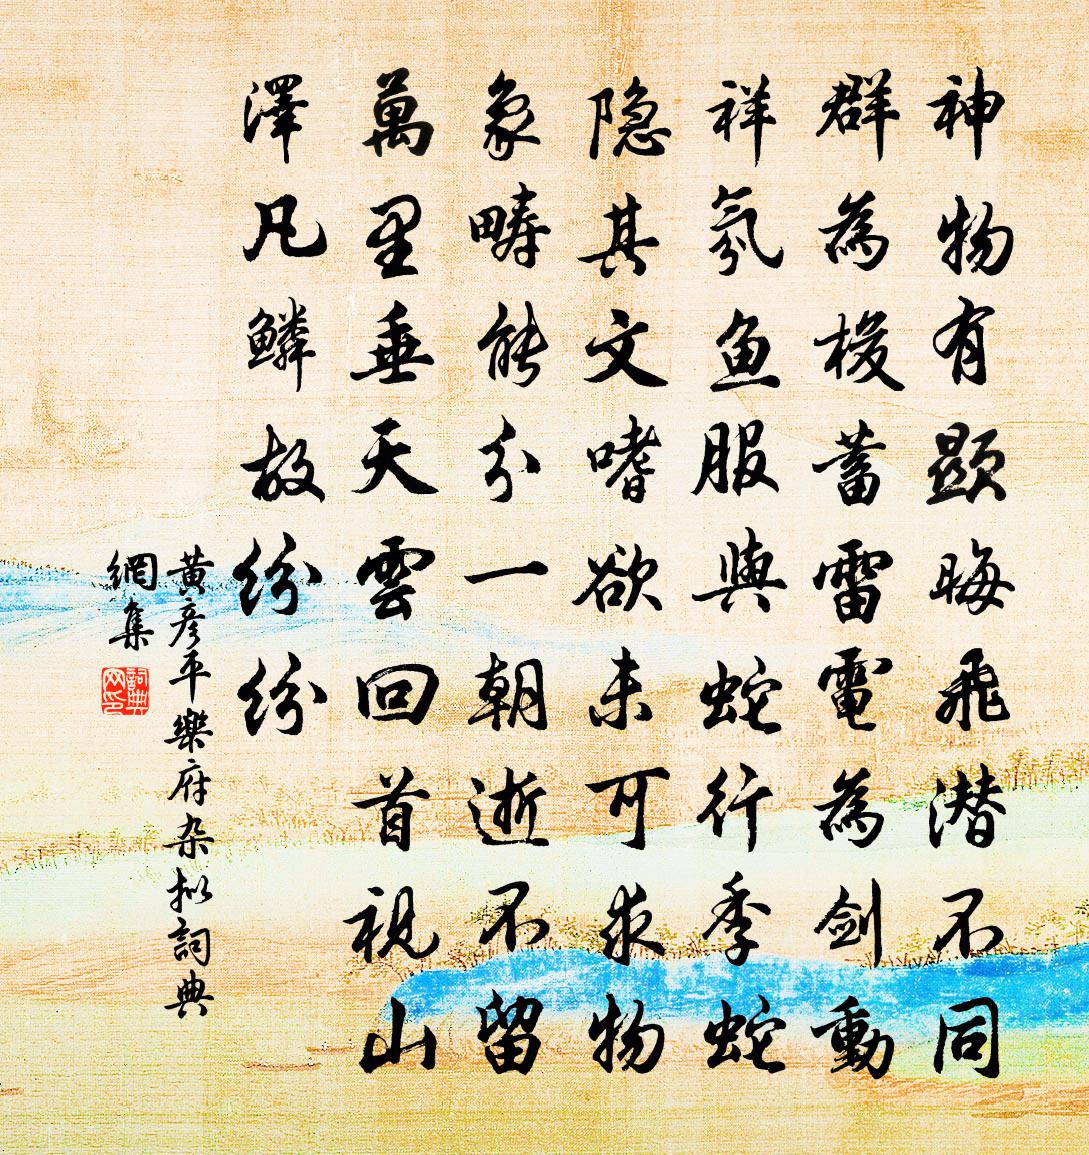 神物有顯晦飛潜不同
群為梭蓄雷電為劍動
祥氛魚服與蛇行季蛇
隐其文嗜欲未可求物
象疇能分一朝逝不留
萬里垂天雲回首視山
澤凡鱗故紛紛
黃彥平樂府杂拟詞典
網集
詞典網印